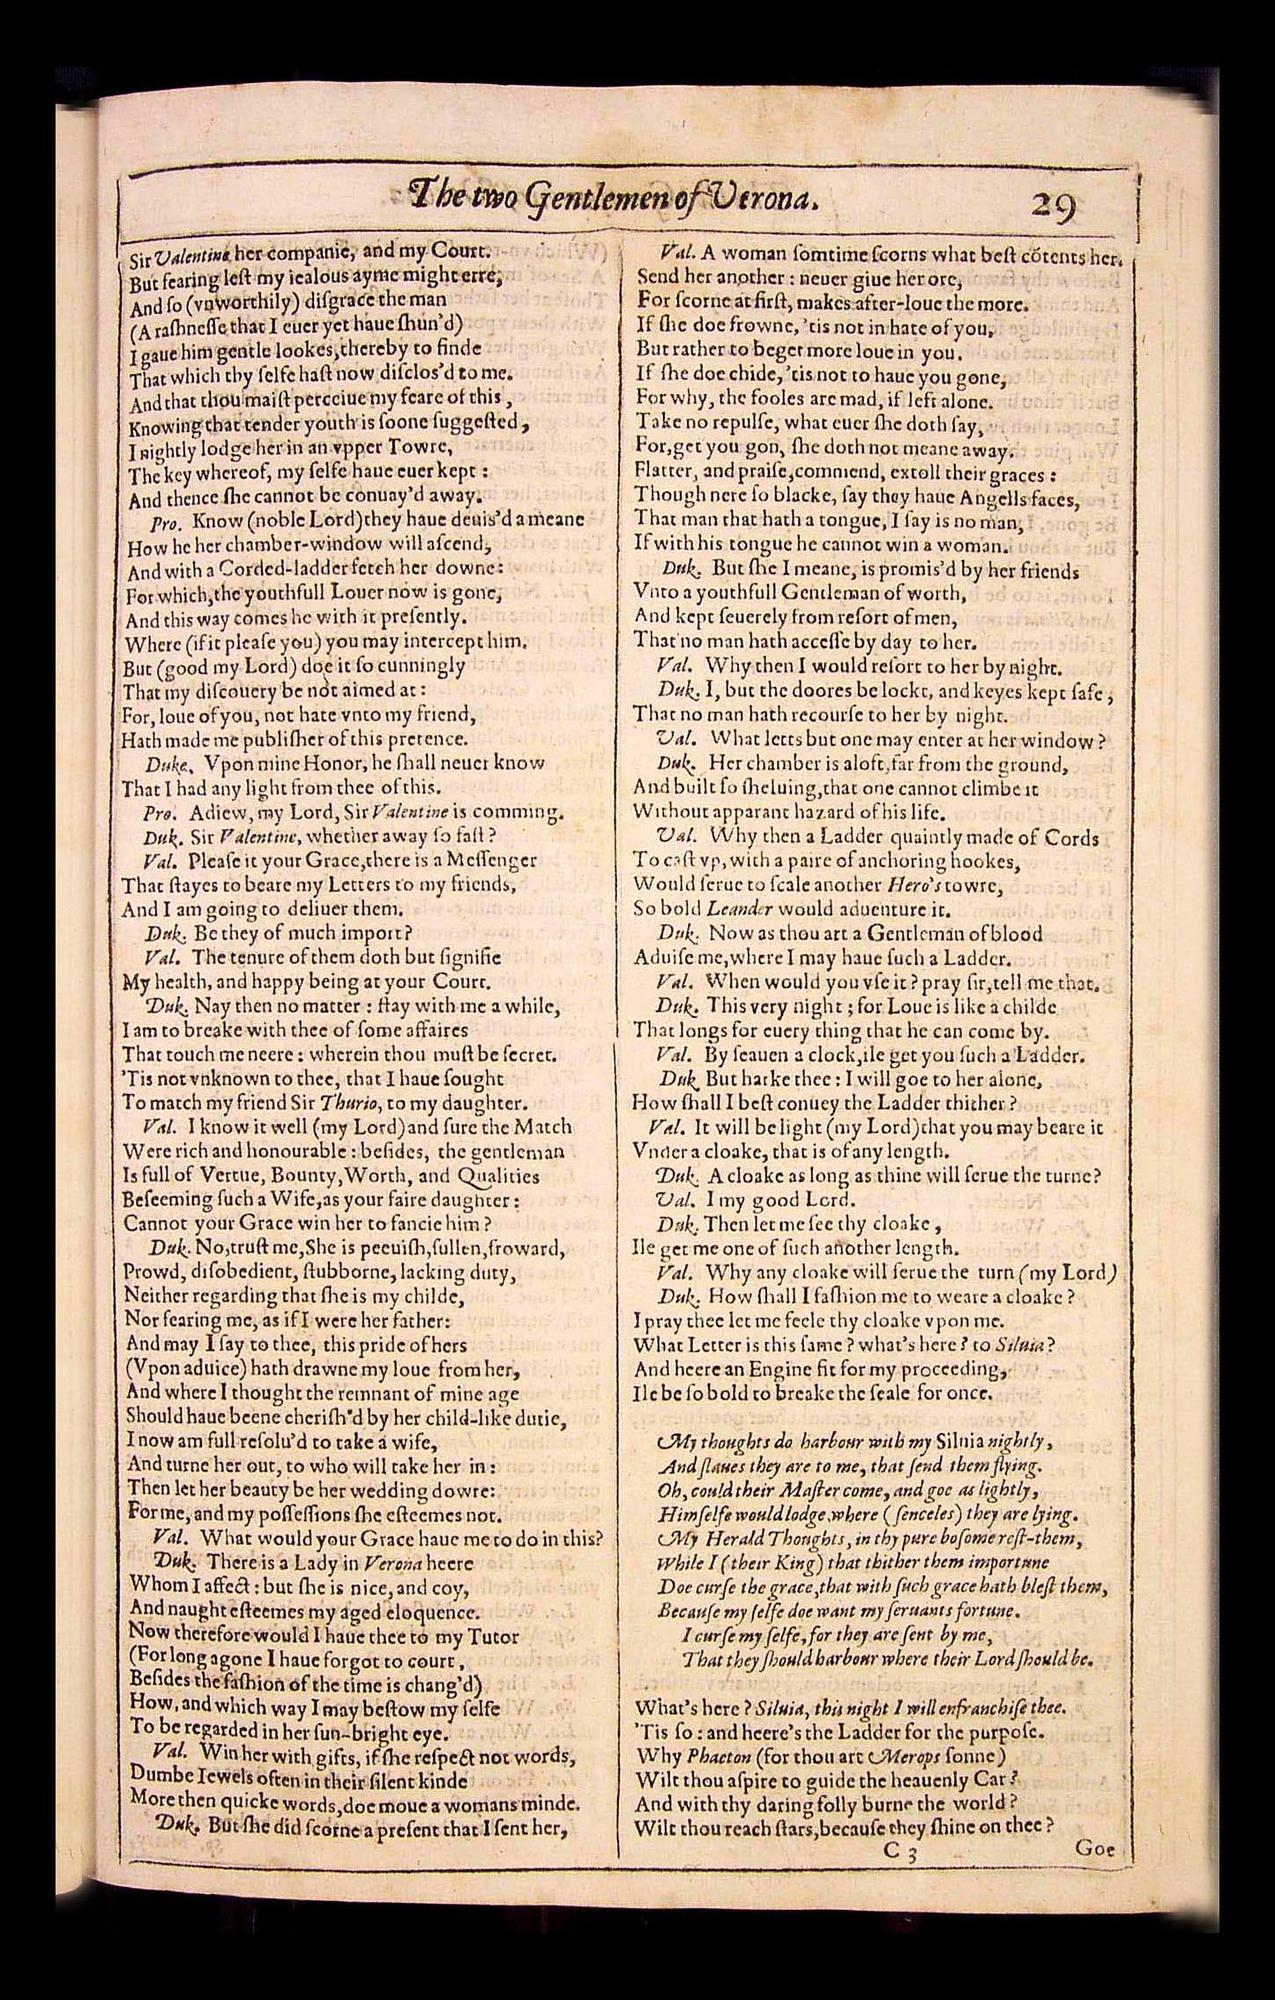 The two Gentlemen of Verona.
29
Sir Valentine her companie, and my Court.
But fearing lest my iealous ayme might erre,
And so (vnworthily) disgrace the man
(A rashnesse that I euer yet haue shun'd)
I gaue him gentle lookes, thereby to finde
That which thy selfe hast now disclos'd to me.
And that thou maist perceiue my feare of this,
Knowing that tender youth is soone suggested,
I nightly lodge her in an vpper Towre,
The key whereof, my selfe haue euer kept:
And thence she cannot be conuay'd away.
Pro. Know (noble Lord) they haue deuis'd a meane
How he her chamber-window will ascend,
And with a Corded-ladder fetch her downe:
For which, the youthfull Louer now is gone,
And this way comes he with it presently.
Where (if it please you) you may intercept him.
But (good my Lord) doe it so cunningly
That my discouery be not aimed at:
For, loue of you, not hate vnto my friend,
Hath made me publisher of this pretence.
Duke. Vpon mine Honor, he shall neuer know
That I had any light from thee of this.
Pro. Adiew, my Lord, Sir Valentine is comming.
Duk. Sir Valentine, whether away so fast?
Val. Please it your Grace, there is a Messenger
That stayes to beare my Letters to my friends,
And I am going to deliuer them.
Duk. Be they of much import?
Val. The tenure of them doth but signifie
My health, and happy being at your Court.
Duk. Nay then no matter: stay with me a while,
I am to breake with thee of some affaires
That touch me neere: wherein thou must be secret.
'Tis not vnknown to thee, that I haue sought
To match my friend Sir Thurio, to my daughter.
Val. I know it well (my Lord) and sure the Match
Were rich and honourable: besides, the gentleman
Is full of Vertue, Bounty, Worth, and Qualities
Beseeming such a Wife, as your faire daughter:
Cannot your Grace win her to fancie him?
Duk. No, trust me, She is peeuish, sullen, froward,
Prowd, disobedient, stubborne, lacking duty,
Neither regarding that she is my childe,
Nor fearing me, as if I were her father:
And may I say to thee, this pride of hers
(Vpon aduice) hath drawne my loue from her,
And where I thought the remnant of mine age
Should haue beene cherish'd by her child-like dutie,
I now am full resolu'd to take a wife,
And turne her out, to who will take her in:
Then let her beauty be her wedding dowre:
For me, and my possessions she esteemes not.
Val. What would your Grace haue me to do in this?
Duk. There is a Lady in Verona heere
Whom I affect: but she is nice, and coy,
And naught esteemes my aged eloquence.
Now therefore would I haue thee to my Tutor
(For long agone I haue forgot to court,
Besides the fashion of the time is chang'd)
How, and which way I may bestow my selfe
To be regarded in her sun-bright eye.
Val. Win her with gifts, if she respect not words,
Dumbe Iewels often in their silent kinde
More then quicke words, doe moue a womans minde.
Duk. But she did scorne a present that I sent her,
Val. A woman somtime scorns what best cõtents her.
Send her another: neuer giue her ore,
For scorne at first, makes after-loue the more.
If she doe frowne, 'tis not in hate of you,
But rather to beget more loue in you.
If she doe chide, 'tis not to haue you gone,
For why, the fooles are mad, if left alone.
Take no repulse, what euer she doth say,
For, get you gon, she doth not meane away.
Flatter, and praise, commend, extoll their graces:
Though nere so blacke, say they haue Angells faces,
That man that hath a tongue, I say is no man,
If with his tongue he cannot win a woman.
Duk. But she I meane, is promis'd by her friends
Vnto a youthfull Gentleman of worth,
And kept seuerely from resort of men,
That no man hath accesse by day to her.
Val. Why then I would resort to her by night.
Duk. I, but the doores be lockt, and keyes kept safe,
That no man hath recourse to her by night.
Val. What letts but one may enter at her window?
Duk. Her chamber is aloft, far from the ground,
And built so sheluing, that one cannot climbe it
Without apparant hazard of his life.
Val. Why then a Ladder quaintly made of Cords
To cast vp, with a paire of anchoring hookes,
Would serue to scale another Hero's towre,
So bold Leander would aduenture it.
Duk. Now as thou art a Gentleman of blood
Aduise me, where I may haue such a Ladder.
Val. When would you vse it? pray sir, tell me that.
Duk. This very night; for Loue is like a childe
That longs for euery thing that he can come by.
Val. By seauen a clock, ile get you such a Ladder.
Duk But harke thee: I will goe to her alone,
How shall I best conuey the Ladder thither?
Val. It will be light (my Lord) that you may beare it
Vnder a cloake, that is of any length.
Duk. A cloake as long as thine will serue the turne?
Val. I my good Lord.
Duk. Then let me see thy cloake,
Ile get me one of such another length.
Val. Why any cloake will serue the turn (my Lord)
Duk. How shall I fashion me to weare a cloake?
I pray thee let me feele thy cloake vpon me.
What Letter is this same? what's here? to Siluia?
And heere an Engine fit for my proceeding,
Ile be so bold to breake the seale for once.
My thoughts do harbour with my Siluia nightly,
And slaues they are to me, that send them flying.
Oh, could their Master come, and goe as lightly,
Himselfe would lodge where (senceles) they are lying.
My Herald Thoughts, in thy pure bosome rest-them,
While I (their King) that thither them importune
Doe curse the grace, that with such grace hath blest them,
Because my selfe doe want my seruants fortune.
I curse my selfe, for they are sent by me,
That they should harbour where their Lord should be.
What's here? Siluia, this night I will enfranchise thee.
'Tis so: and heere's the Ladder for the purpose.
Why Phaeton (for thou art Merops sonne)
Wilt thou aspire to guide the heauenly Car?
And with thy daring folly burne the world?
Wilt thou reach stars, because they shine on thee?
C 3
Goe